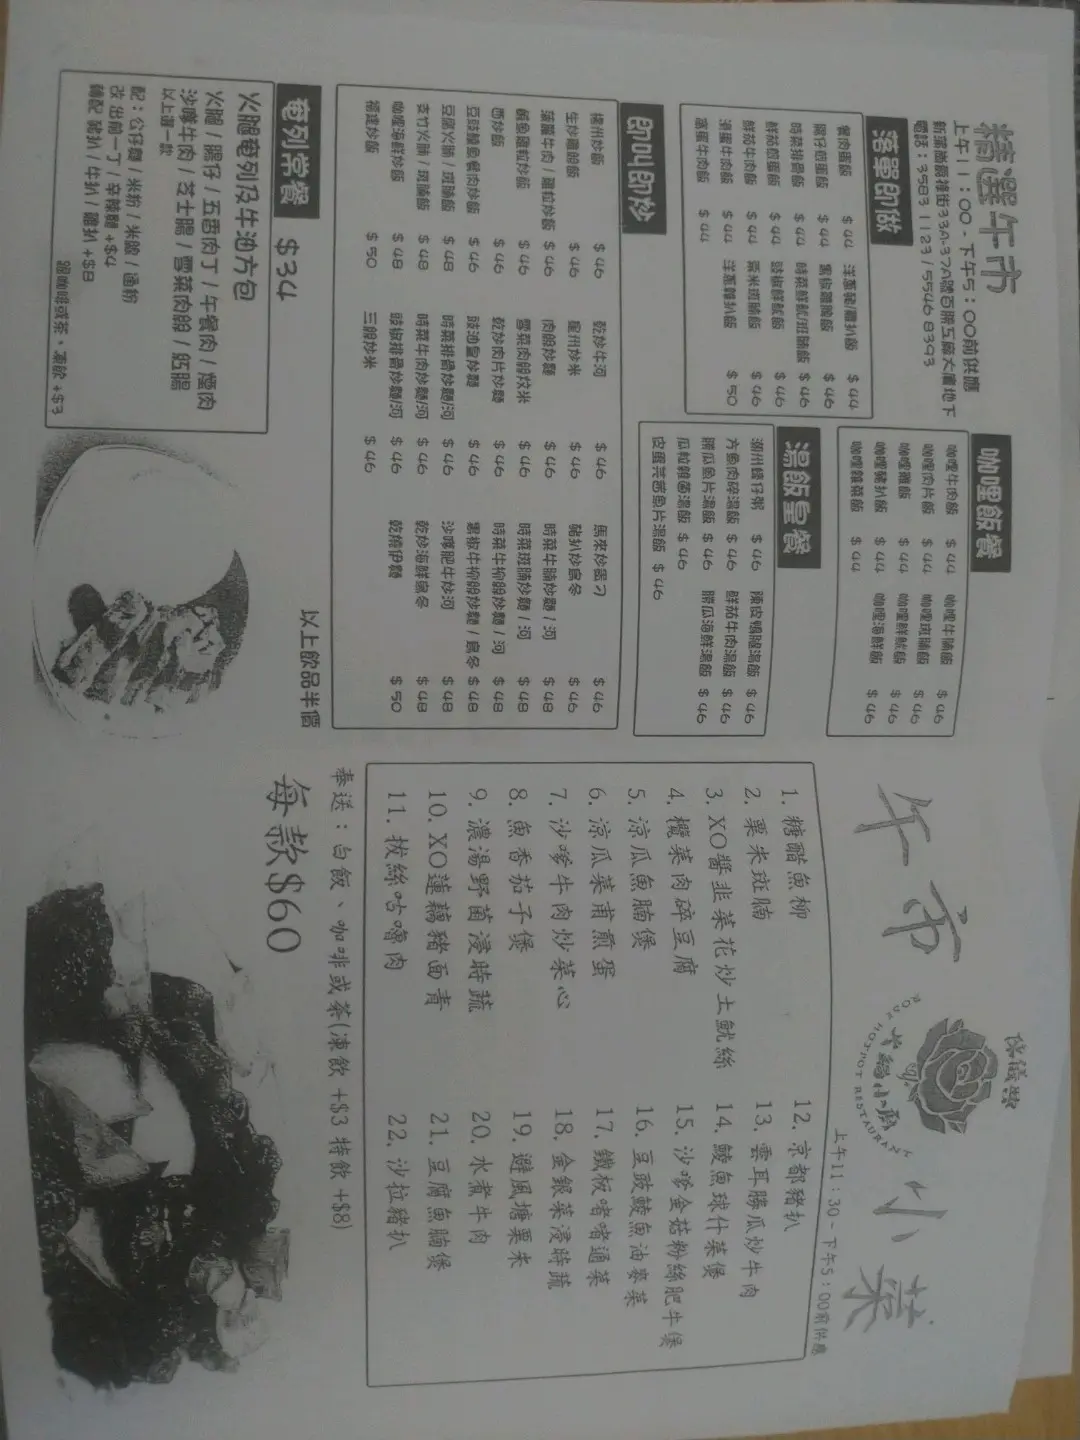 精選午市
上午11：00 - 下午5：00前供應
新蒲崗爵祿街33A-37A號百勝工廠大廈地下
電話：3583 1123 / 5546 8393
落單即做
餐肉蛋飯 $44 洋蔥豬/雞扒飯 $44
腸仔煎蛋飯 $44 黑椒雞腩飯 $46
時菜排骨飯 $44 時菜鮮魷/斑腩飯 $46
鮮茄煎蛋飯 $44 豉椒鮮魷飯 $46
鮮茄牛肉飯 $44 粟米斑腩飯 $46
滑蛋牛肉飯 $44 洋蔥雜扒飯 $50
窩蛋牛肉飯 $44
咖哩飯餐
咖哩牛肉飯 $44 咖哩牛腩飯 $46
咖哩肉片飯 $44 咖哩斑腩飯 $46
咖哩雞飯 $44 咖哩鮮魷飯 $46
咖哩豬扒飯 $44 咖哩海鮮飯 $46
咖哩雜菜飯 $44
湯飯皇餐
潮州蠔仔粥 $46 陳皮鴨腿湯飯 $46
方魚肉碎湯飯 $46 鮮茄牛肉湯飯 $46
勝瓜魚片湯飯 $46 勝瓜海鮮湯飯 $46
瓜粒雜菌湯飯 $46
皮蛋芫茜魚片湯飯 $46
即叫即炒
楊州炒飯 $46 乾炒牛河 $46 馬來炒貴刁 $46
生炒雞飯 $46 星州炒米 $46 豬扒炒烏冬 $46
菠蘿牛肉 / 雞粒炒飯 $46 肉絲炒麵 $46 時菜牛腩炒麵 / 河 $48
鹹魚雞粒炒飯 $46 雪菜肉絲炆米 $46 時菜斑腩炒麵 / 河 $48
西炒飯 $46 乾炒肉片炒麵 $46 時菜牛柳絲炒麵 / 河 $48
豆豉鯪魚餐肉炒飯 $46 豉油皇炒麵 $46 黑椒牛柳絲炒麵 / 烏冬 $48
豆腐火腩 / 斑腩飯 $48 時菜排骨炒麵/河 $46 沙嗲肥牛炒河 $48
支竹火腩 / 斑腩飯 $48 時菜牛肉炒麵/河 $46 乾炒海鮮烏冬 $48
咖哩海鮮炒飯 $48 豉椒排骨炒麵/河 $46 乾燒伊麵 $50
福建炒飯 $50 三絲炒米 $46
奄列常餐 $34
火腿奄列及牛油方包
火腿 / 腸仔 / 五香肉丁 / 午餐肉 / 煙肉
沙嗲牛肉 / 芝士腸 / 雪菜肉絲 / 紅腸
以上選一款
配：公仔麵 / 米粉 / 米線 / 通粉
改 出前一丁 / 辛辣麵 +$4
轉配 豬扒 / 牛扒 / 雞扒 +$8
跟咖啡或茶、凍飲 +$3
以上飲品半價
午市小菜
ROSE HOTPOT RESTAURANT
上午11：30 - 下午5：00前供應
1. 糖醋魚柳
2. 粟米斑腩
3. XO醬韭菜花炒土魷絲
4. 欖菜肉碎豆腐
5. 涼瓜魚腩煲
6. 涼瓜菜甫煎蛋
7. 沙嗲牛肉炒菜心
8. 魚香茄子煲
9. 濃湯野菌浸時蔬
10. XO蓮藕豬面青
11. 拔絲咕嚕肉
12. 京都豬扒
13. 雲耳勝瓜炒牛肉
14. 鯪魚球什菜煲
15. 沙嗲金菇粉絲肥牛煲
16. 豆豉鯪魚油麥菜
17. 鐵板啫啫通菜
18. 金銀菜浸時蔬
19. 避風塘粟米
20. 水煮牛肉
21. 豆腐魚腩煲
22. 沙拉豬扒
奉送：白飯、咖啡或茶(凍飲 +$3 特飲 +$8)
每款$60